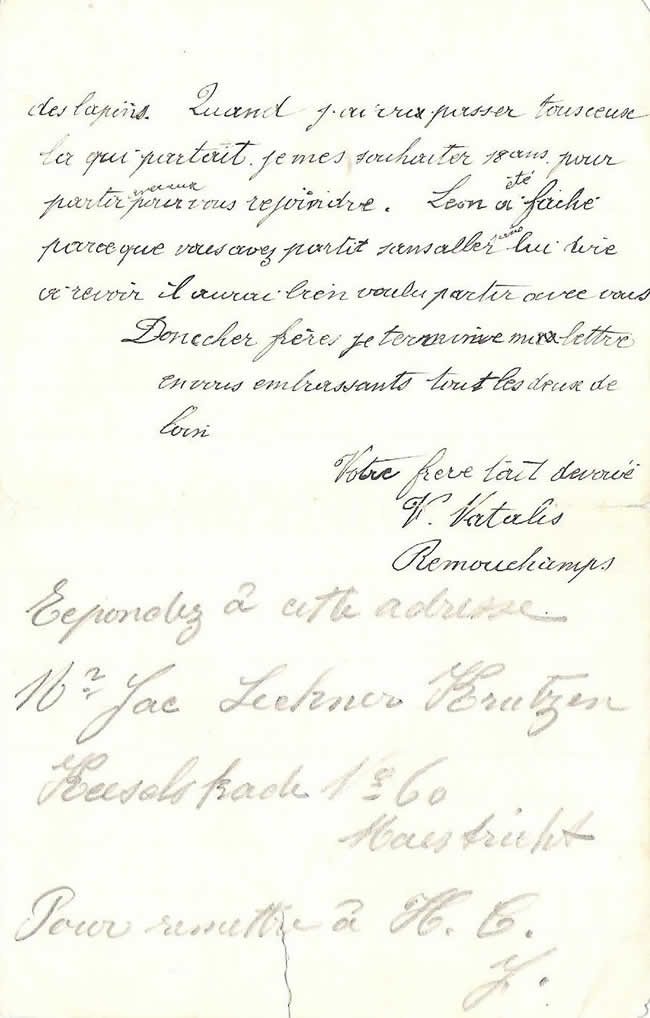 des lapins. Quand j'ai vu passer tous ceux
la qui partait, je mes souhaiter 18 ans pour
partir pour vous rejoindre. Leon a été faché
parceque vous avez partit sans aller lui dire
a revoir il aurai bien voulu partir avec vous
Donc cher frères je termine ma lettre
en vous embrassants tout les deux de
loin
Votre frere tout devoué
V. Natalis
Remouchamps
Repondez à cette adresse
Mr Jac Lechner Krutzen
Keesels kade No 60
Maestricht
Pour remettre à H. C.
J.